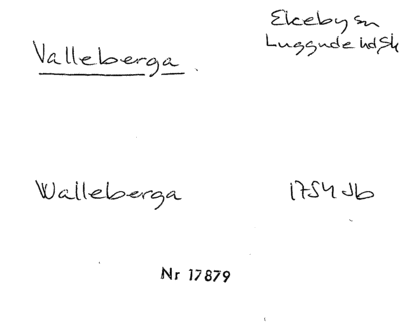 Valleberga.
Ekeby sn
Luggude hd Sk
Walleberga 1754 Jb
Nr 17879